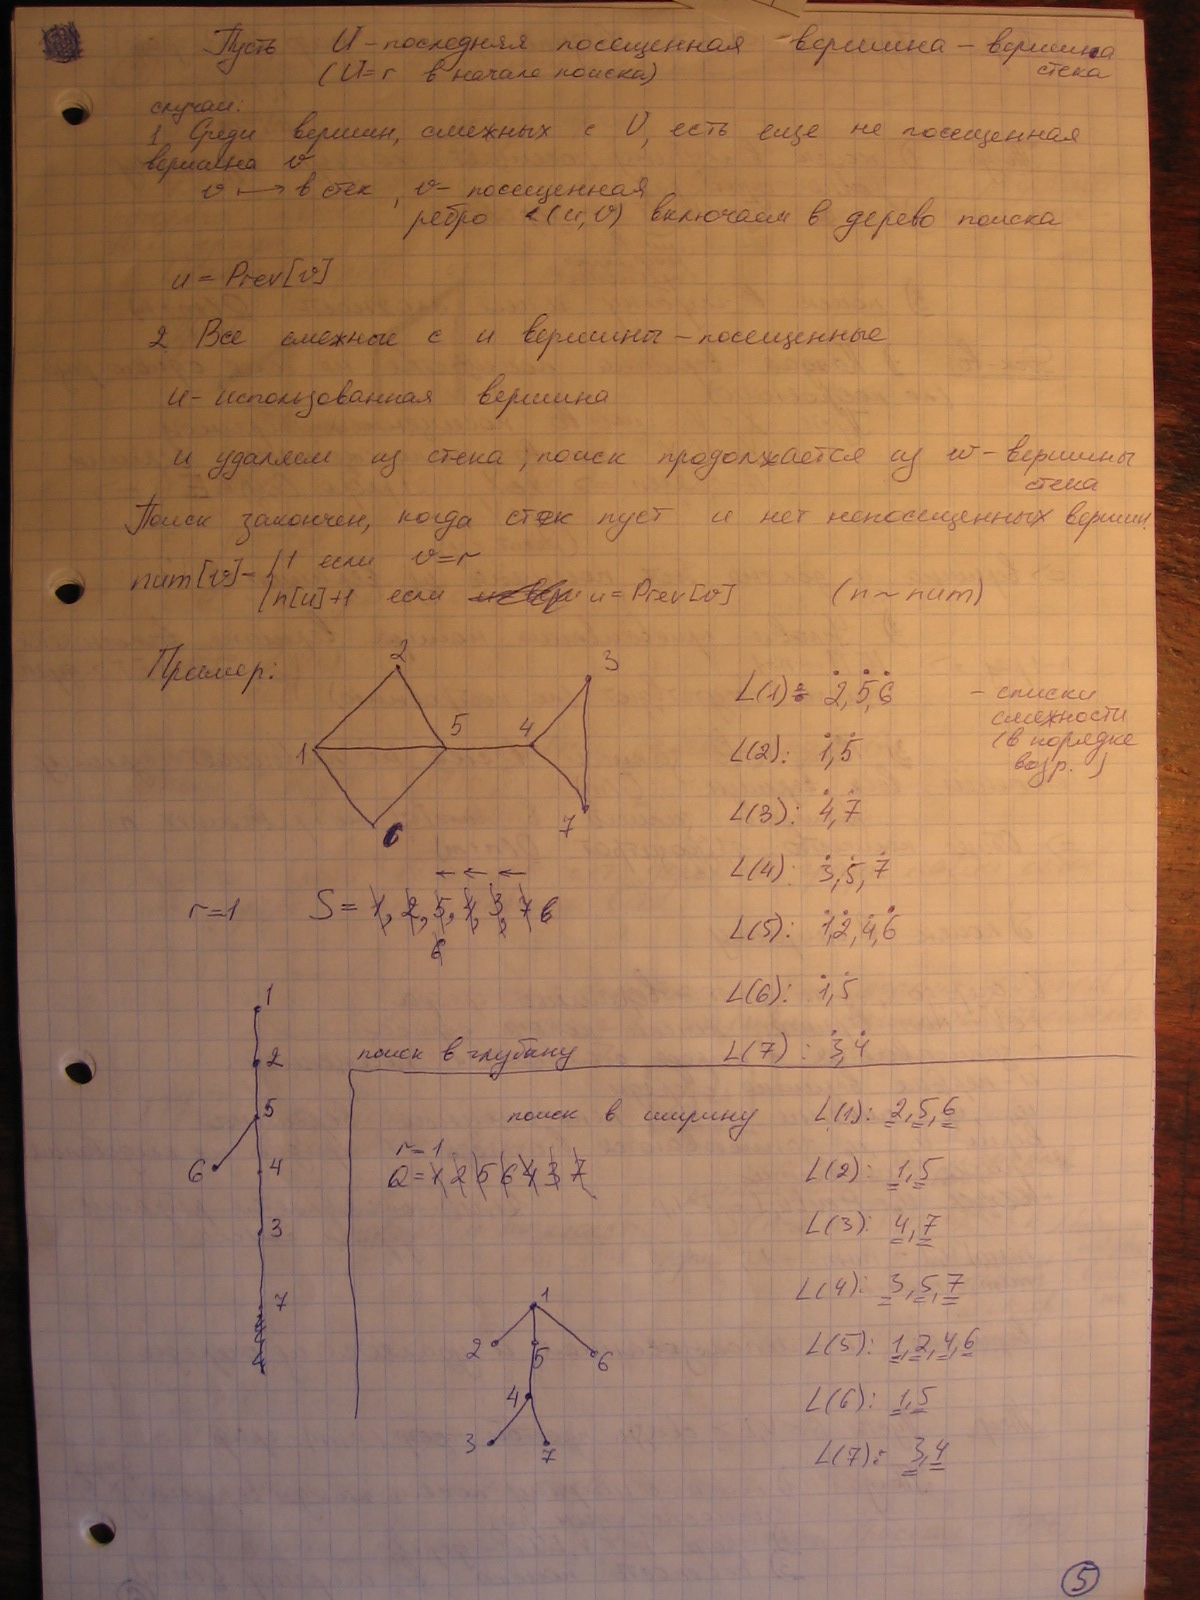 Пусть U – последняя посещенная вершина – вершина
стека
(U=r в начале поиска)
случаи:
1 Среди вершин, смежных с U, есть еще не посещенная
вершина v
v ⟼ в стек, v – посещенная
ребро (u,v) включаем в дерево поиска
u = Prev[v]
2 Все смежные с u вершины – посещенные
u – использованная вершина
u удаляем из стека, поиск продолжается из w – вершины
стека
Поиск закончен, когда стек пуст и нет непосещенных вершин.
num[v] – { 1 если v=r
n[u]+1 если u = Prev[v] (n ~ num)
Пример:
2
3
1
5
4
6
7
L(1): 2,5,6
– списки
смежности
(в порядке
возр.)
L(2): 1,5
L(3): 4,7
L(4): 3,5,7
L(5): 1,2,4,6
L(6): 1,5
L(7): 3,4
r=1 S= 1, 2, 5, 4, 3, 7 6
6
1
2
5
6
4
3
7
поиск в глубину
поиск в ширину
r=1
Q= 1 2 5 6 4 3 7
L(1): 2,5,6
L(2): 1,5
L(3): 4,7
L(4): 3,5,7
L(5): 1,2,4,6
L(6): 1,5
L(7): 3,4
1
2
5
6
4
3
7
5